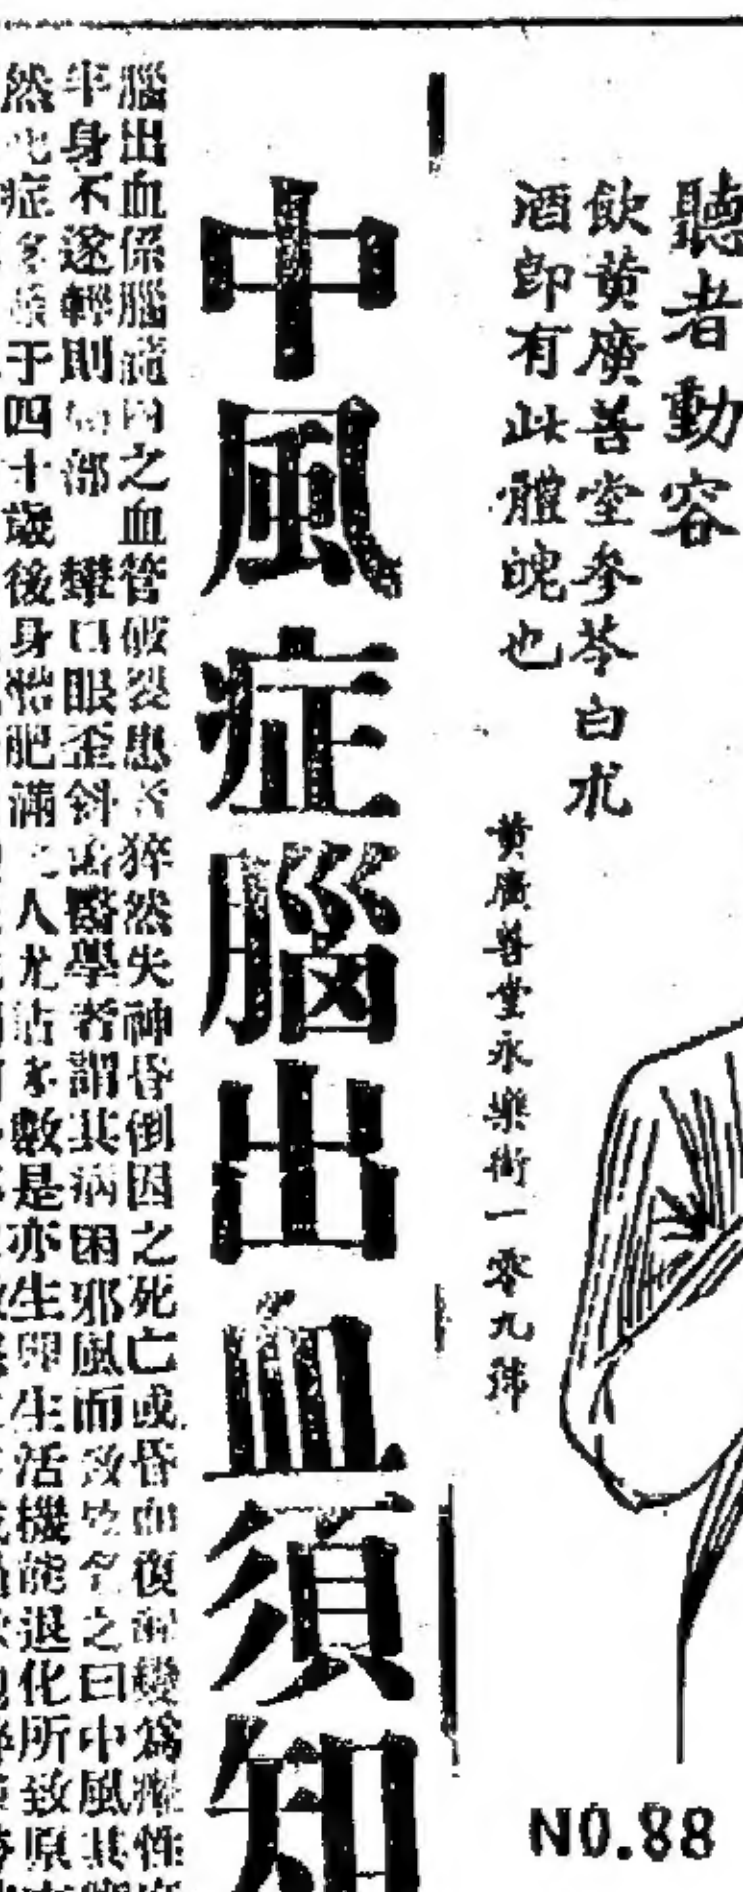 聽者動容
飲黃廣善堂參苓白朮
酒卽有此體魄也
黃廣善堂永樂街一零九號
NO.88
中風症腦出血須知
腦出血係腦蓋內之血管破裂患者猝然失神昏倒因之死亡或昏而復醒變為癱性
半身不遂輕則局部攣口眼歪斜舊醫學者謂其病因邪風而致故名之曰中風其
然此症多發于四十歲後身體肥滿之人尤佔多數是亦生卽生活機能退化所致原